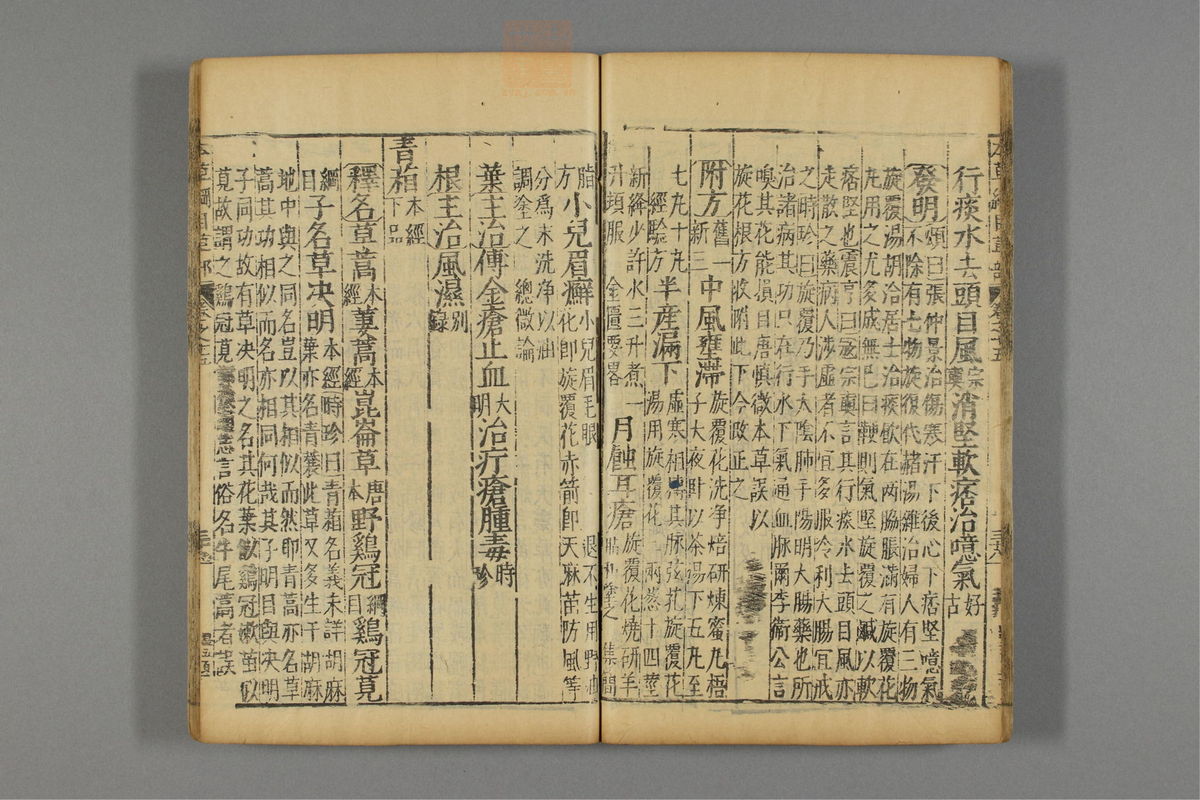 行痰水去頭目風宗奭消堅軟痞治噫氣好古
發明頌曰張仲景治傷寒汗下後心下痞堅噫氣
不除有七物旋復代赭湯雜治婦人有三物
旋覆湯胡洽居士治痰飲在兩脇脹滿有旋覆花
丸用之尤多成無己曰鞕則氣堅旋覆之鹹以軟
痞堅也震亨曰寇宗奭言其行痰水去頭目風亦
走散之藥病人涉虛者不宜多服冷利大腸宜戒
之時珍曰旋覆乃手太陰肺手陽明大腸藥也所
治諸病其功只在行水下氣通血脉爾李衛公言
嗅其花能損目唐慎微本草誤以
旋花根方收附此下今政正之
附方舊一新三
中風壅滯旋覆花洗净焙研煉蜜丸梧
子大夜卧以茶湯下五丸至
七丸十丸
經驗方
半產漏下虛寒相搏其脉弦芤旋覆花
湯用旋覆花三兩葱十四莖
新絳少許水三升煮一
升頓服 金匱要畧
月蝕耳瘡旋覆花燒研羊
脂和塗之 集簡
本草綱目草部 卷之十五
脂
方
小兒眉癬小兒眉毛眼退不生用野油
花卽旋覆花赤箭卽天麻苗防風等
分爲末洗净以油
調塗之 總微論
葉主治傅金瘡止血大明治疔瘡腫毒時珍
根主治風濕别錄
青葙本經下品
釋名草蒿本經萋蒿本經崑崙草唐本野鷄冠綱目鷄冠莧
綱目
子名草决明本經時珍曰青葙名義未詳胡麻
葉亦名青蘘此草又多生于胡麻
地中與之同名豈以其相似而然耶青蒿亦名草
蒿其功相似而名亦相同何哉其子明目與决明
子同功故有草决明之名其花葉似鷄冠嫩苗似
莧故謂之鷄冠莧
言俗名牛尾蒿者誤
本草綱目草部 卷之十五